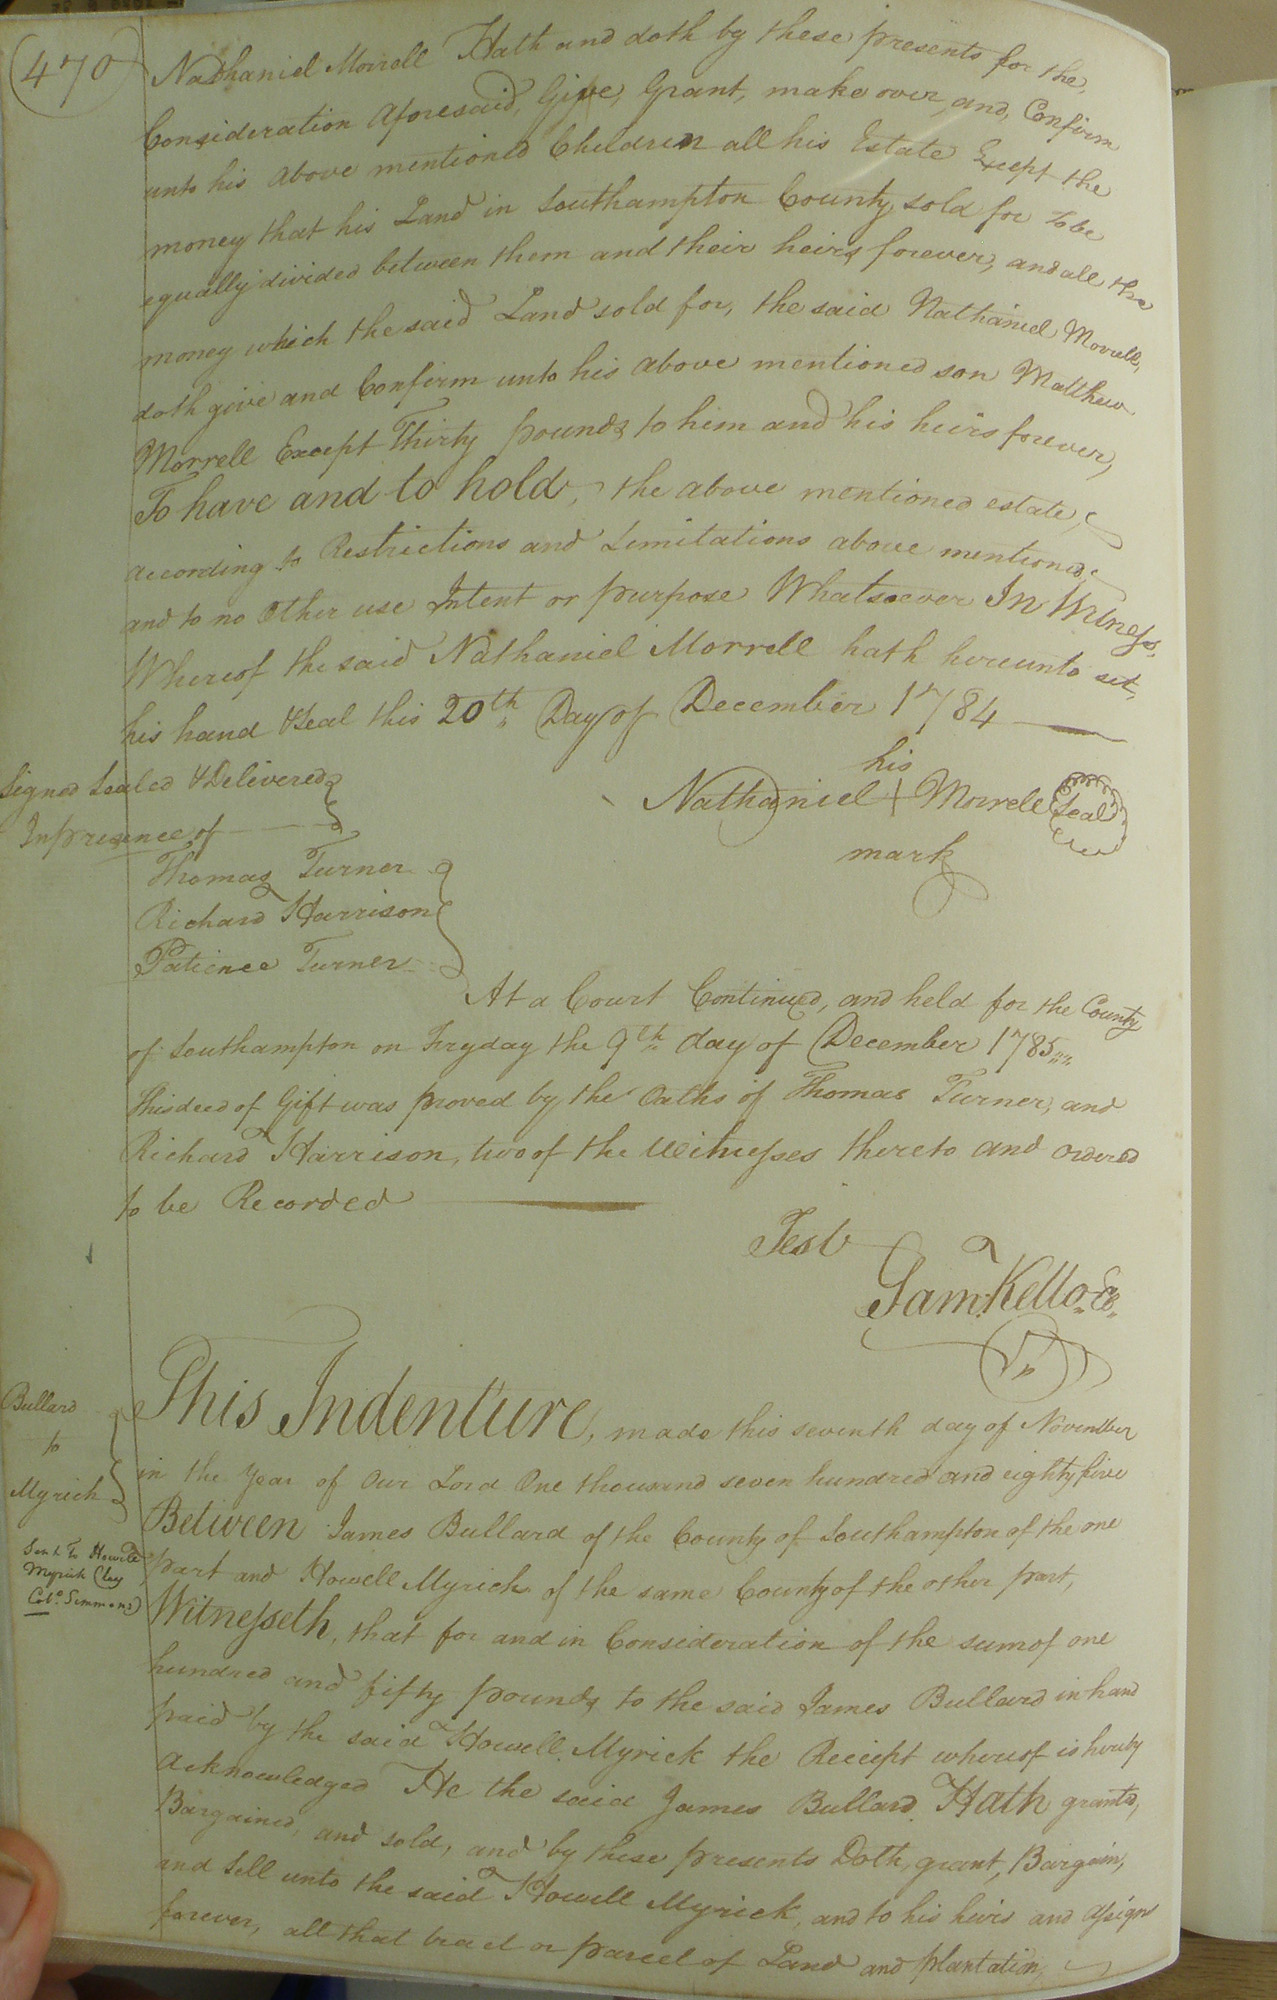 (470)
Nathaniel Morrell Hath and doth by these presents for the,
Consideration Aforesaid, Give, Grant, make over, and, Confirm
unto his above mentioned Children all his Estate Except the
money that his Land in Southampton County sold for to be
equally divided between them and their heirs forever, and all the
money which the said Land sold for, the said Nathaniel Morrell,
doth give and Confirm unto his above mentioned son Matthew
Morrell Except Thirty pounds to him and his heirs forever,
To have and to hold, the above mentioned estate,
according to Restrictions and Limitations above mentioned
and to no Other use Intent or purpose Whatsoever In Witness
Whereof the said Nathaniel Morrell hath hereunto set,
his hand & Seal this 20th Day of December 1784
his
Signed Sealed & Delivered
Nathaniel Morrell Seal
In presence of
mark
Thomas Turner
Richard Harrison
Patience Turner
At a Court Continued, and held for the County
of Southampton on Fryday the 9th day of December 1785
this deed of Gift was proved by the Oaths of Thomas Turner, and
Richard Harrison, two of the Witnesses thereto and ordered
to be Recorded
Test
Sam: Kello
This Indenture, made this seventh day of November
in the Year of Our Lord One thousand seven hundred and eighty five
Between James Bullard of the County of Southampton of the one
part and Howell Myrick of the same County of the other part,
Witnesseth, that for and in Consideration of the sum of one
hundred and fifty pounds to the said James Bullard in hand
paid by the said Howell Myrick the Receipt whereof is hereby
Acknowledged He the said James Bullard Hath granted,
Bargained, and sold, and by these presents Doth, grant, Bargain,
and Sell unto the said Howell Myrick, and to his heirs and assigns
forever, all that tract or parcel of Land and plantation,
Bullard
to
Myrick
Sent To Howell
Myrick
Colo. Simmons